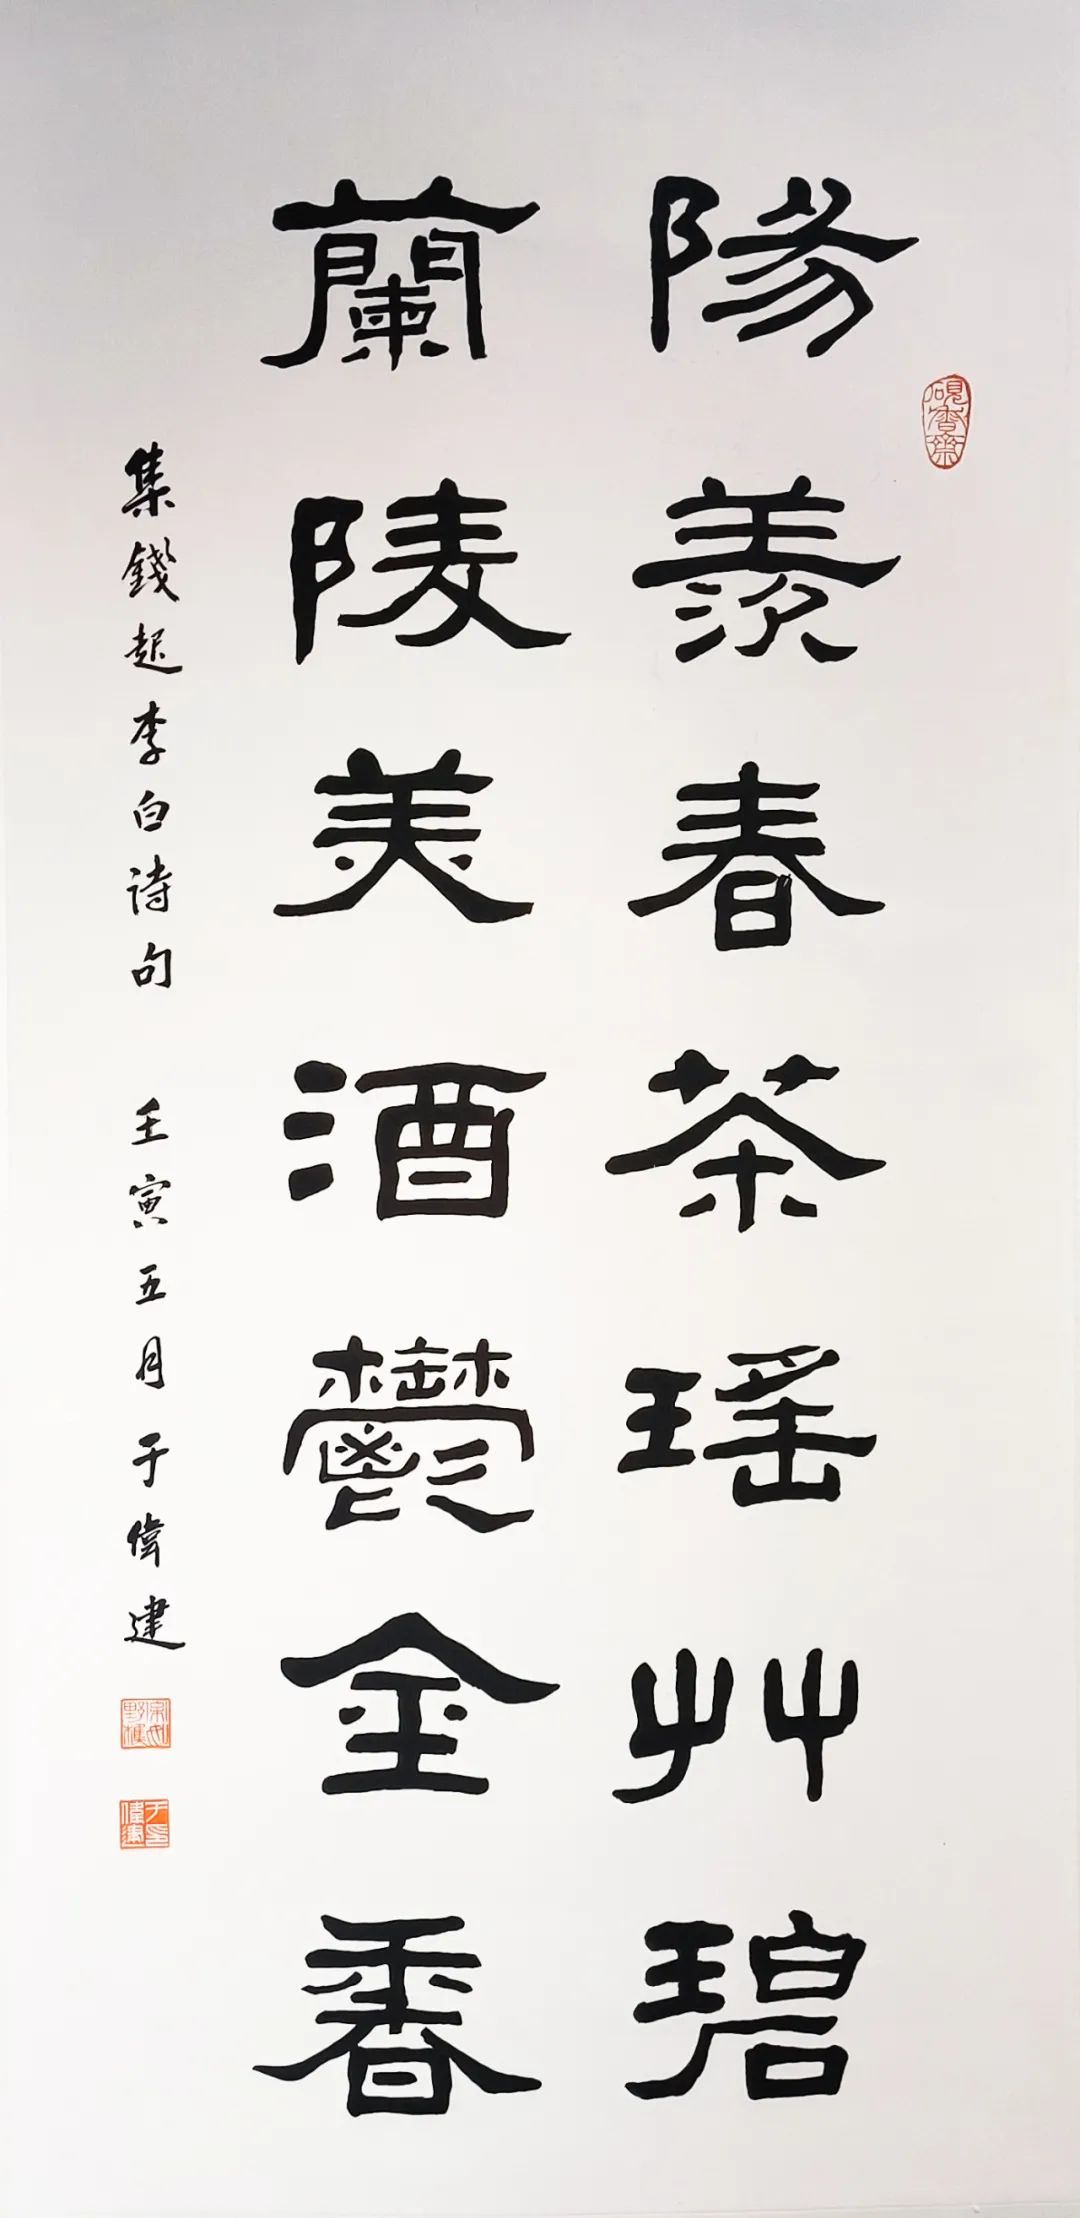 陽羨春茶瑶艸碧
蘭陵美酒鬱金香
集錢起李白詩句 壬寅五月于偉建
硯香齋
于偉建印